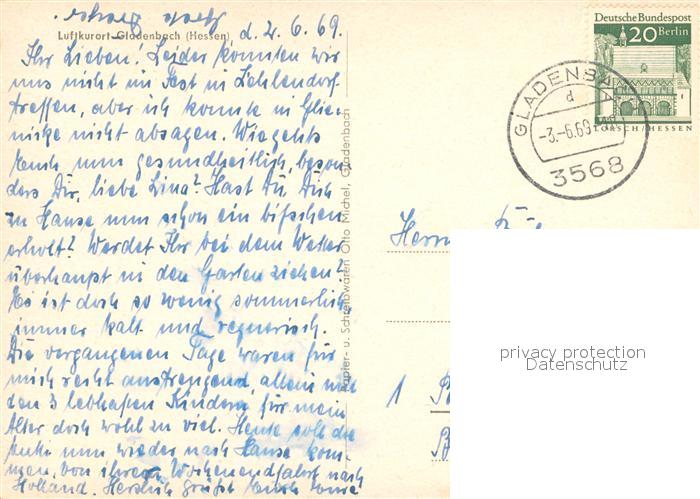 Luftkurort Gladenbach (Hessen)
d. 2. 6. 69.
Ihr Lieben! Leider konnten wir
uns nicht im Fest in Zehlendorf
treffen, aber ich konnte in Glie-
nicke nicht absagen. Wie gehts
Euch nun gesundheitlich, beson-
ders Dir, liebe Lina? Hast Du Dich
zu Hause nun schon ein bißchen
erholt? Werdet Ihr bei dem Wetter
überhaupt in den Garten ziehen?
Es ist doch so wenig sommerlich,
immer kalt und regnerisch.
Die vergangenen Tage waren für
mich recht anstrengend, allein mit
den 3 lebhaften Kindern für mein
Alter doch wohl zu viel. Heute soll die
nun wieder nach Hause kom-
men, von ihrer Wochenendfahrt nach
Holland. Herzlich grüßt Euch Eure
Papier- u. Schreibwaren Otto Michel, Gladenbach
Deutsche Bundespost
20 Berlin
LORSCH/HESSEN
GLADENBACH
d
-3.-6.69
3568
Herrn
1
B
privacy protection
Datenschutz